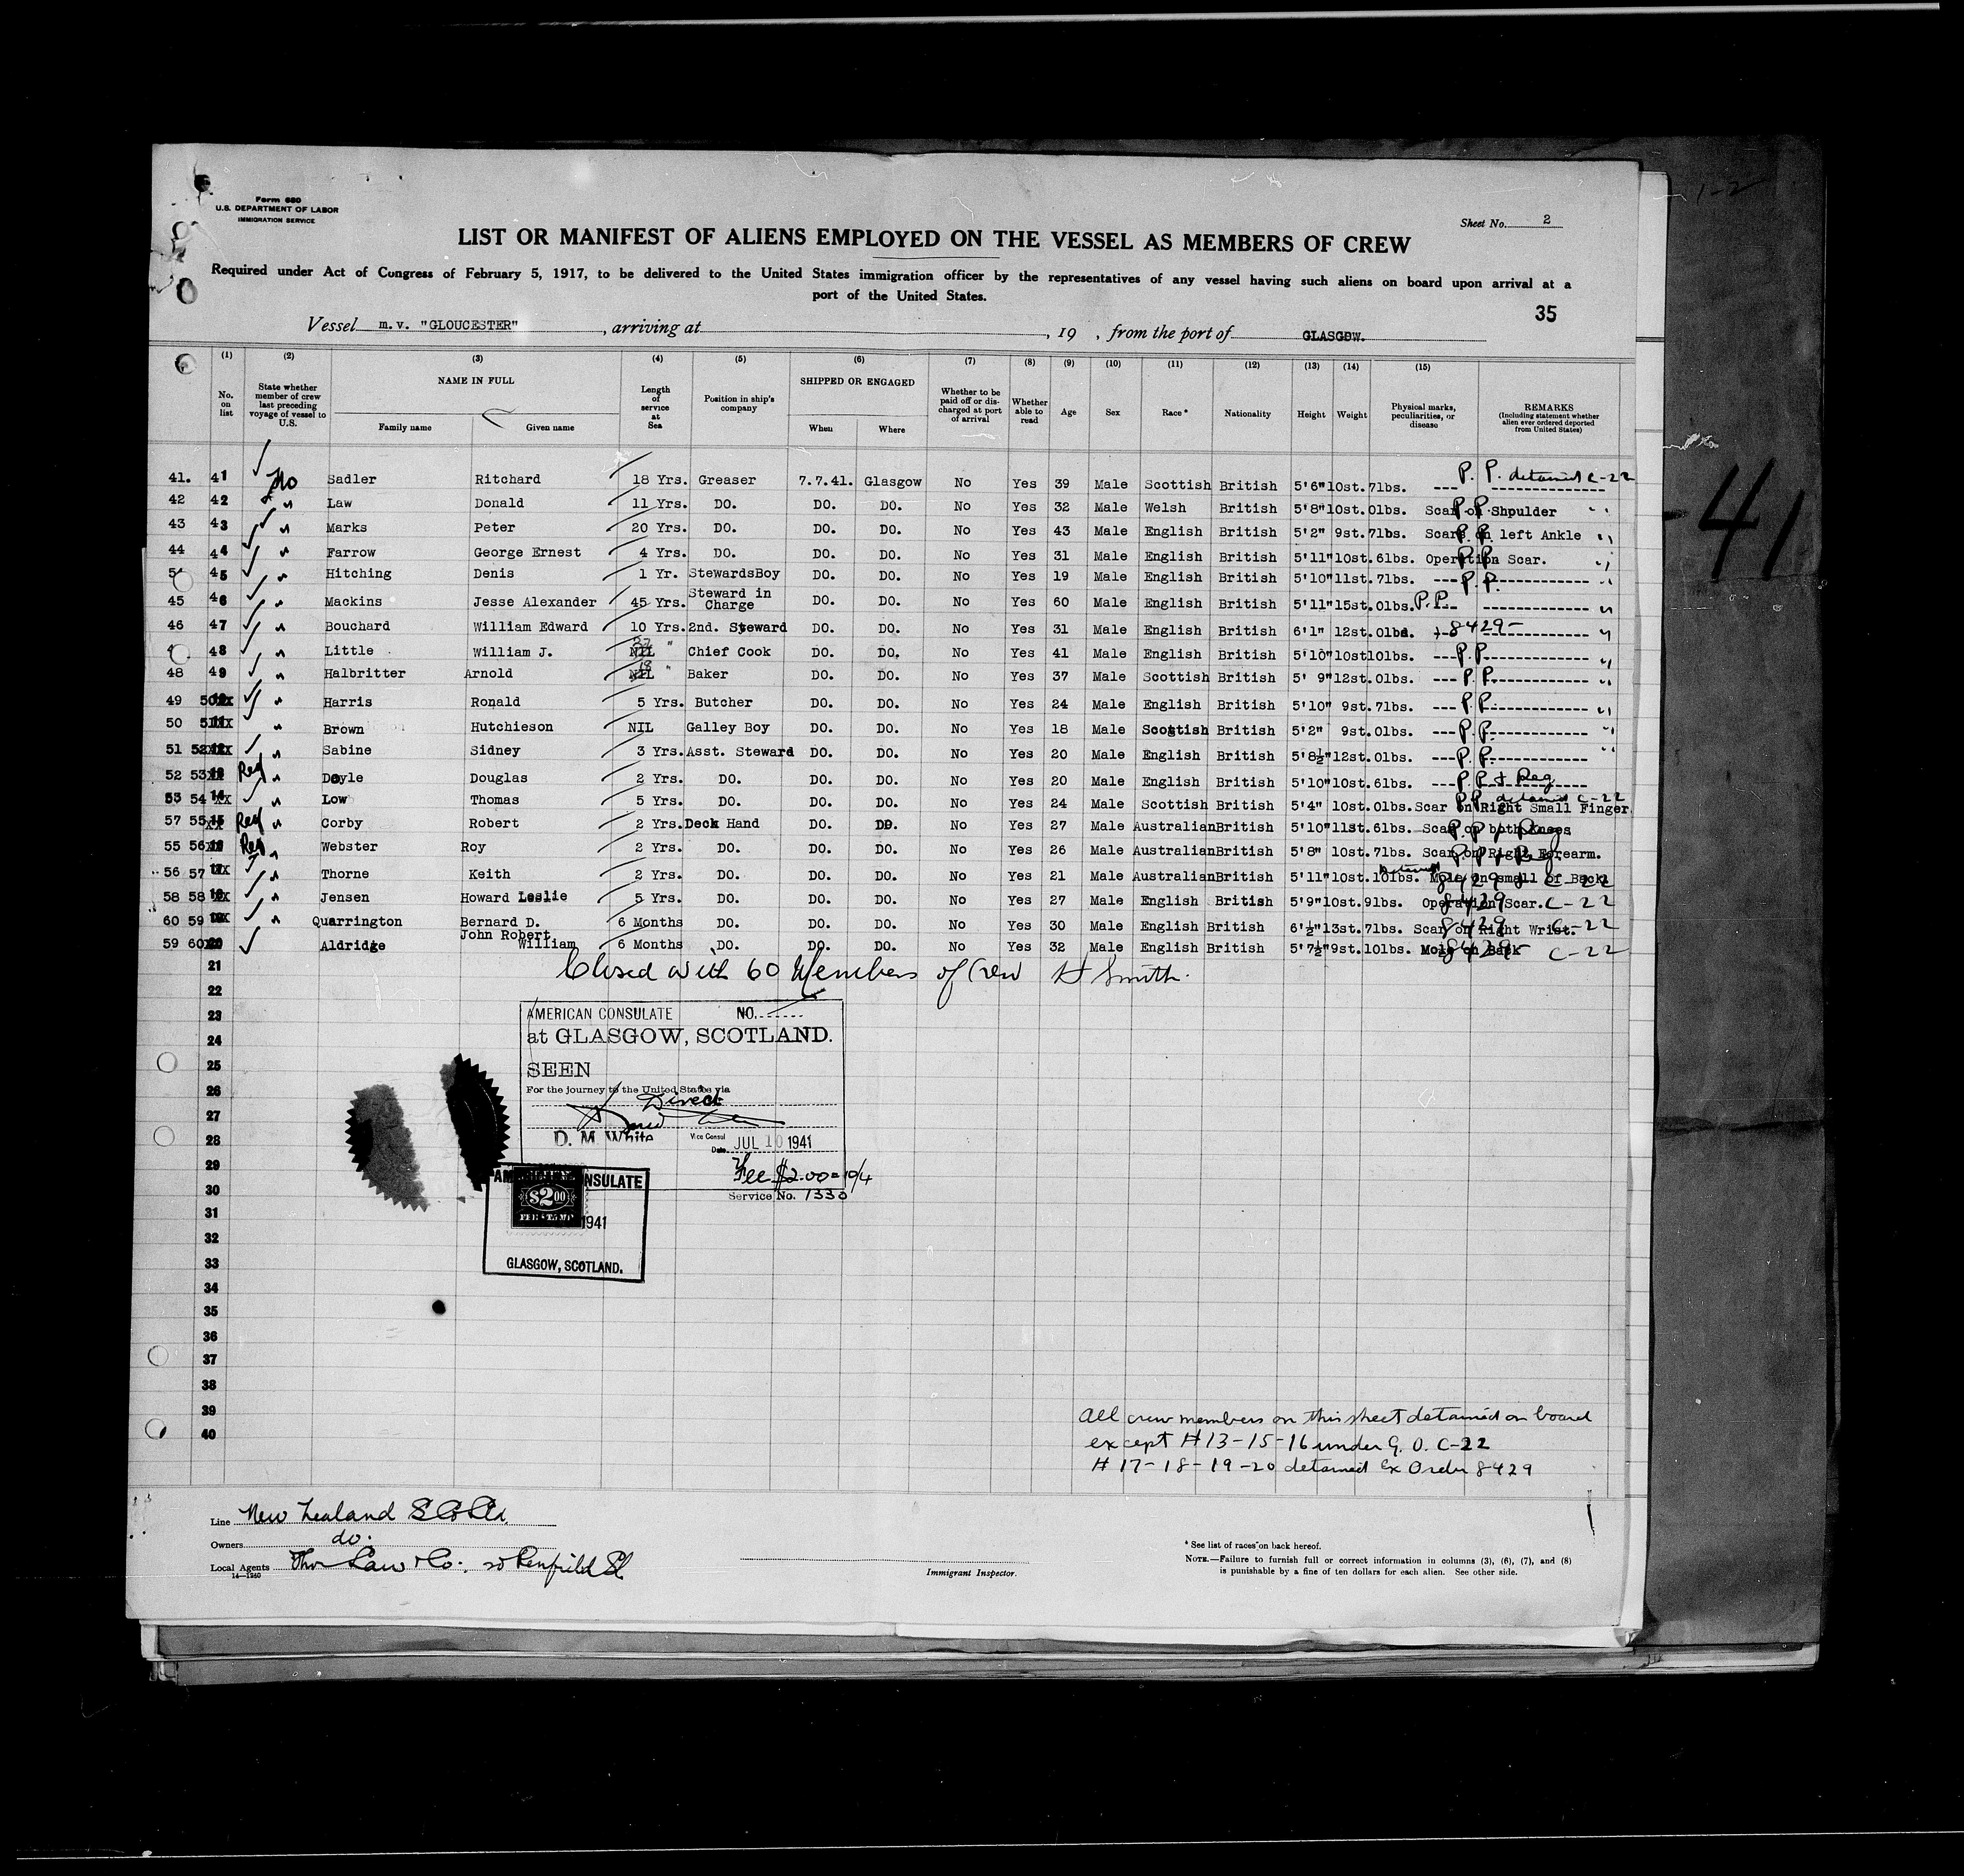 Form 680
U.S. DEPARTMENT OF LABOR
IMMIGRATION SERVICE
Sheet No. 2
LIST OR MANIFEST OF ALIENS EMPLOYED ON THE VESSEL AS MEMBERS OF CREW
Required under Act of Congress of February 5, 1917, to be delivered to the United States immigration officer by the representatives of any vessel having such aliens on board upon arrival at a
port of the United States.
35
Vessel m.v. "GLOUCESTER", arriving at , 19 , from the port of GLASGOW.
(1) (2) (3) (4) (5) (6) (7) (8) (9) (10) (11) (12) (13) (14) (15)
No. on list
State whether member of crew last preceding voyage of vessel to U.S.
NAME IN FULL
Family name Given name
Length of service at Sea
Position in ship's company
SHIPPED OR ENGAGED
When Where
Whether to be paid off or discharged at port of arrival
Whether able to read
Age Sex Race* Nationality Height Weight
Physical marks, peculiarities, or disease
REMARKS
(Including statement whether alien ever ordered deported from United States)
41. 41 No Sadler Ritchard 18 Yrs. Greaser 7.7.41. Glasgow No Yes 39 Male Scottish British 5'6" 10st.7lbs. --- P.P. detained C-22
42 42 " Law Donald 11 Yrs. DO. DO. DO. No Yes 32 Male Welsh British 5'8" 10st.0lbs. Scar on Shpulder P.P. "
43 43 " Marks Peter 20 Yrs. DO. DO. DO. No Yes 43 Male English British 5'2" 9st.7lbs. Scars on left Ankle P.P. "
44 44 " Farrow George Ernest 4 Yrs. DO. DO. DO. No Yes 31 Male English British 5'11" 10st.6lbs. Operation Scar. P.P. "
45 " Hitching Denis 1 Yr. StewardsBoy DO. DO. No Yes 19 Male English British 5'10" 11st.7lbs. --- P.P. "
45 46 " Mackins Jesse Alexander 45 Yrs. Steward in Charge DO. DO. No Yes 60 Male English British 5'11" 15st.0lbs. P.P. "
46 47 " Bouchard William Edward 10 Yrs. 2nd. Steward DO. DO. No Yes 31 Male English British 6'1" 12st.0lbs. 8429 "
48 " Little William J. NIL " Chief Cook DO. DO. No Yes 41 Male English British 5'10" 10st10lbs. --- P.P. "
48 49 " Halbritter Arnold NIL 18 " Baker DO. DO. No Yes 37 Male Scottish British 5' 9" 12st.0lbs. --- P.P. "
49 50 " Harris Ronald 5 Yrs. Butcher DO. DO. No Yes 24 Male English British 5'10" 9st.7lbs. --- P.P. "
50 51 " Brown Hutchieson NIL Galley Boy DO. DO. No Yes 18 Male Scottish British 5'2" 9st.0lbs. --- P.P. "
51 52 " Sabine Sidney 3 Yrs. Asst. Steward DO. DO. No Yes 20 Male English British 5'8½" 12st.0lbs. --- P.P. "
52 53 Reg " Doyle Douglas 2 Yrs. DO. DO. DO. No Yes 20 Male English British 5'10" 10st.6lbs. --- P.P. + Reg
53 54 " Low Thomas 5 Yrs. DO. DO. DO. No Yes 24 Male Scottish British 5'4" 10st.0lbs. Scar on Right Small Finger. P.P. detained C-22
57 55 Reg " Corby Robert 2 Yrs. Deck Hand DO. DO. No Yes 27 Male Australian British 5'10" 11st.6lbs. Scar on both Knees P.P. + Reg
55 56 Reg " Webster Roy 2 Yrs. DO. DO. DO. No Yes 26 Male Australian British 5'8" 10st.7lbs. Scar on Right Forearm. P.P. + Reg.
56 57 " Thorne Keith 2 Yrs. DO. DO. DO. No Yes 21 Male Australian British 5'11" 10st.10lbs. Mole on small of Back. Detained 8429 C-22
58 58 " Jensen Howard Leslie 5 Yrs. DO. DO. DO. No Yes 27 Male English British 5'9" 10st.9lbs. Operation Scar. 8429 C-22
60 59 " Quarrington Bernard D. 6 Months DO. DO. DO. No Yes 30 Male English British 6'½" 13st.7lbs. Scar on Right Wrist. 8429 C-22
59 60 Aldridge John Robert William 6 Months DO. DO. DO. No Yes 32 Male English British 5'7½" 9st.10lbs. Mole on Back 8429 C-22
21 Closed with 60 Members of Crew H Smith.
22
23
24
25
26
27
28
29
30
31
32
33
34
35
36
37
38
39
40
AMERICAN CONSULATE NO.
at GLASGOW, SCOTLAND.
SEEN
For the journey to the United States via
Direct
D. M. White Vice Consul
Date JUL 10 1941
Fee $2.00=10/4
Service No. 1330
AMERICAN CONSULATE
$2.00
FEE STAMP
1941
GLASGOW, SCOTLAND.
All crew members on this sheet detained on board
except # 13-15-16 under G. O. C-22
# 17-18-19-20 detained Ex Order 8429
Line New Zealand
Owners do.
Local Agents Thos Law & Co. Renfield St
14-1260
Immigrant Inspector.
* See list of races on back hereof.
NOTE.—Failure to furnish full or correct information in columns (3), (6), (7), and (8)
is punishable by a fine of ten dollars for each alien. See other side.
1-2
41